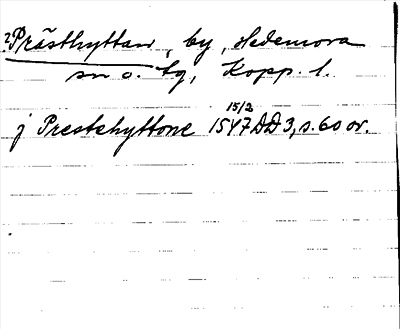 2Prästhyttan, by, Hedemora
sn o. tg, Kopp. l.
15/2
j Prestehyttone 1547 DD 3, s. 60 or.